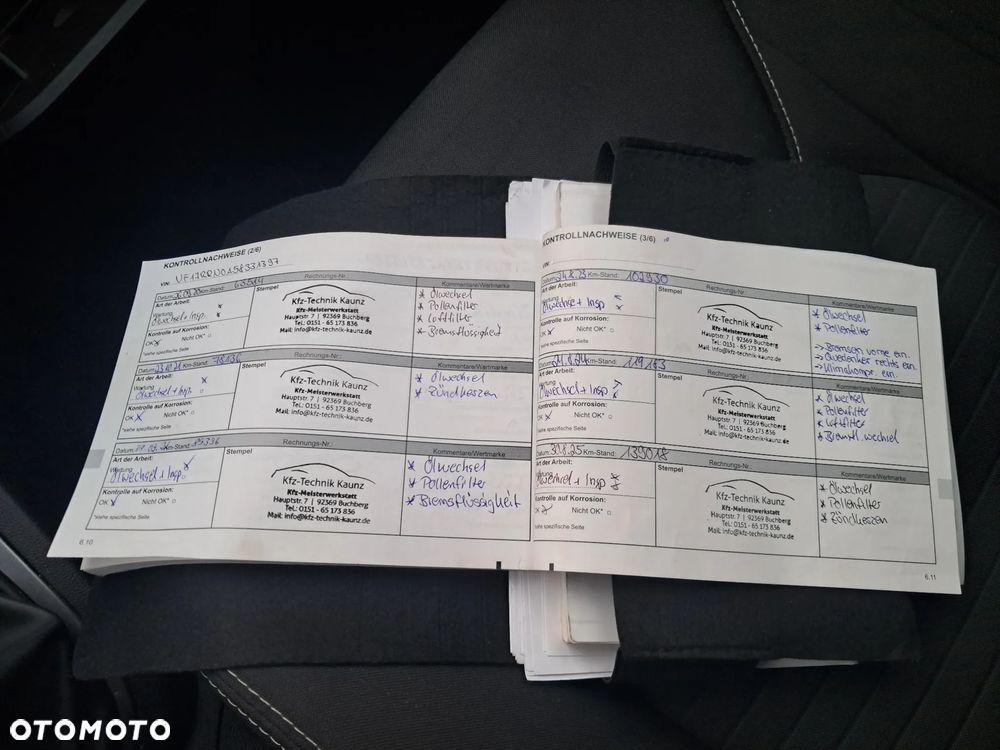 KONTROLLNACHWEISE (2/6)
VIN: VF17R0N0158331397
Rechnungs-Nr.:
Kommentare/Wertmarke
Km-Stand:
Stempel
Art der Arbeit:
Wartung
Ölwechsel + Insp.
Kontrolle auf Korrosion:
OK Nicht OK*
*siehe spezifische Seite
Kfz-Technik Kaunz
Kfz-Meisterwerkstatt
Hauptstr. 7 | 92369 Buchberg
Tel.: 0151 - 65 173 836
Mail: info@kfz-technik-kaunz.de
* Ölwechsel
* Pollenfilter
* Luftfilter
* Bremsflüssigkeit
Datum: Km-Stand: 78136
Rechnungs-Nr.:
Kommentare/Wertmarke
Art der Arbeit:
Wartung
Ölwechsel + Insp.
Kontrolle auf Korrosion:
OK Nicht OK*
*siehe spezifische Seite
Stempel
Kfz-Technik Kaunz
Kfz-Meisterwerkstatt
Hauptstr. 7 | 92369 Buchberg
Tel.: 0151 - 65 173 836
Mail: info@kfz-technik-kaunz.de
* Ölwechsel
* Zündkerzen
Datum: Km-Stand:
Rechnungs-Nr.:
Kommentare/Wertmarke
Art der Arbeit:
Wartung
Ölwechsel + Insp.
Kontrolle auf Korrosion:
OK Nicht OK*
*siehe spezifische Seite
Stempel
Kfz-Technik Kaunz
Kfz-Meisterwerkstatt
Hauptstr. 7 | 92369 Buchberg
Tel.: 0151 - 65 173 836
Mail: info@kfz-technik-kaunz.de
* Ölwechsel
* Pollenfilter
* Bremsflüssigkeit
6.10
KONTROLLNACHWEISE (3/6)
VIN:
Datum: 24.8.23 Km-Stand: 102930
Rechnungs-Nr.:
Kommentare/Wertmarke
Art der Arbeit:
Wartung
Ölwechsel + Insp
Kontrolle auf Korrosion:
OK Nicht OK*
*siehe spezifische Seite
Stempel
Kfz-Technik Kaunz
Kfz-Meisterwerkstatt
Hauptstr. 7 | 92369 Buchberg
Tel.: 0151 - 65 173 836
Mail: info@kfz-technik-kaunz.de
* Ölwechsel
* Pollenfilter
-> Bremsen vorne ern.
-> Querlenker rechts ern.
-> Klimakompr. ern.
Datum: Km-Stand: 119163
Rechnungs-Nr.:
Kommentare/Wertmarke
Art der Arbeit:
Wartung
Ölwechsel + Insp
Kontrolle auf Korrosion:
OK Nicht OK*
*siehe spezifische Seite
Stempel
Kfz-Technik Kaunz
Kfz-Meisterwerkstatt
Hauptstr. 7 | 92369 Buchberg
Tel.: 0151 - 65 173 836
Mail: info@kfz-technik-kaunz.de
* Ölwechsel
* Pollenfilter
* Luftfilter
* Bremfl. wechsel
Datum: Km-Stand: 139018
Rechnungs-Nr.:
Kommentare/Wertmarke
Art der Arbeit:
Ölwechsel + Insp
Kontrolle auf Korrosion:
Nicht OK*
*siehe spezifische Seite
Stempel
Kfz-Technik Kaunz
Kfz-Meisterwerkstatt
Hauptstr. 7 | 92369 Buchberg
Tel.: 0151 - 65 173 836
Mail: info@kfz-technik-kaunz.de
* Ölwechsel
* Pollenfilter
* Zündkerzen
6.11
OTOMOTO